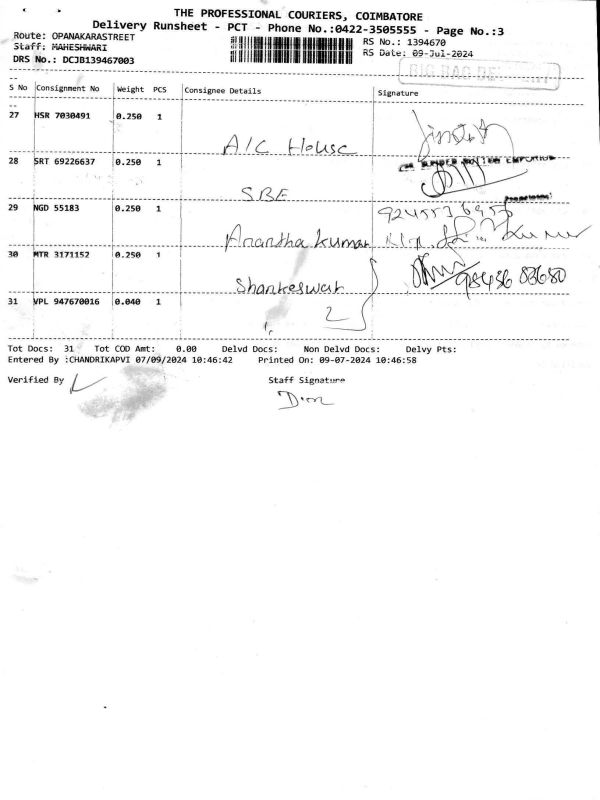 THE PROFESSIONAL COURIERS, COIMBATORE
Delivery Runsheet - PCT - Phone No.:0422-3505555 - Page No.:3
Route: OPANAKARASTREET RS No.: 1394670
Staff: MAHESHWARI RS Date: 09-Jul-2024
DRS No.: DCJB139467003
S No Consignment No Weight PCS Consignee Details Signature
27 HSR 7030491 0.250 1
A/C House
28 SRT 69226637 0.250 1
SBE
29 NGD 55183 0.250 1
Anantha kumar Kumar
30 MTR 3171152 0.250 1
Shankeswar 98436 83680
31 VPL 947670016 0.040 1
2
Tot Docs: 31 Tot COD Amt: 0.00 Delvd Docs: Non Delvd Docs: Delvy Pts:
Entered By :CHANDRIKAPVI 07/09/2024 10:46:42 Printed On: 09-07-2024 10:46:58
Verified By Staff Signature